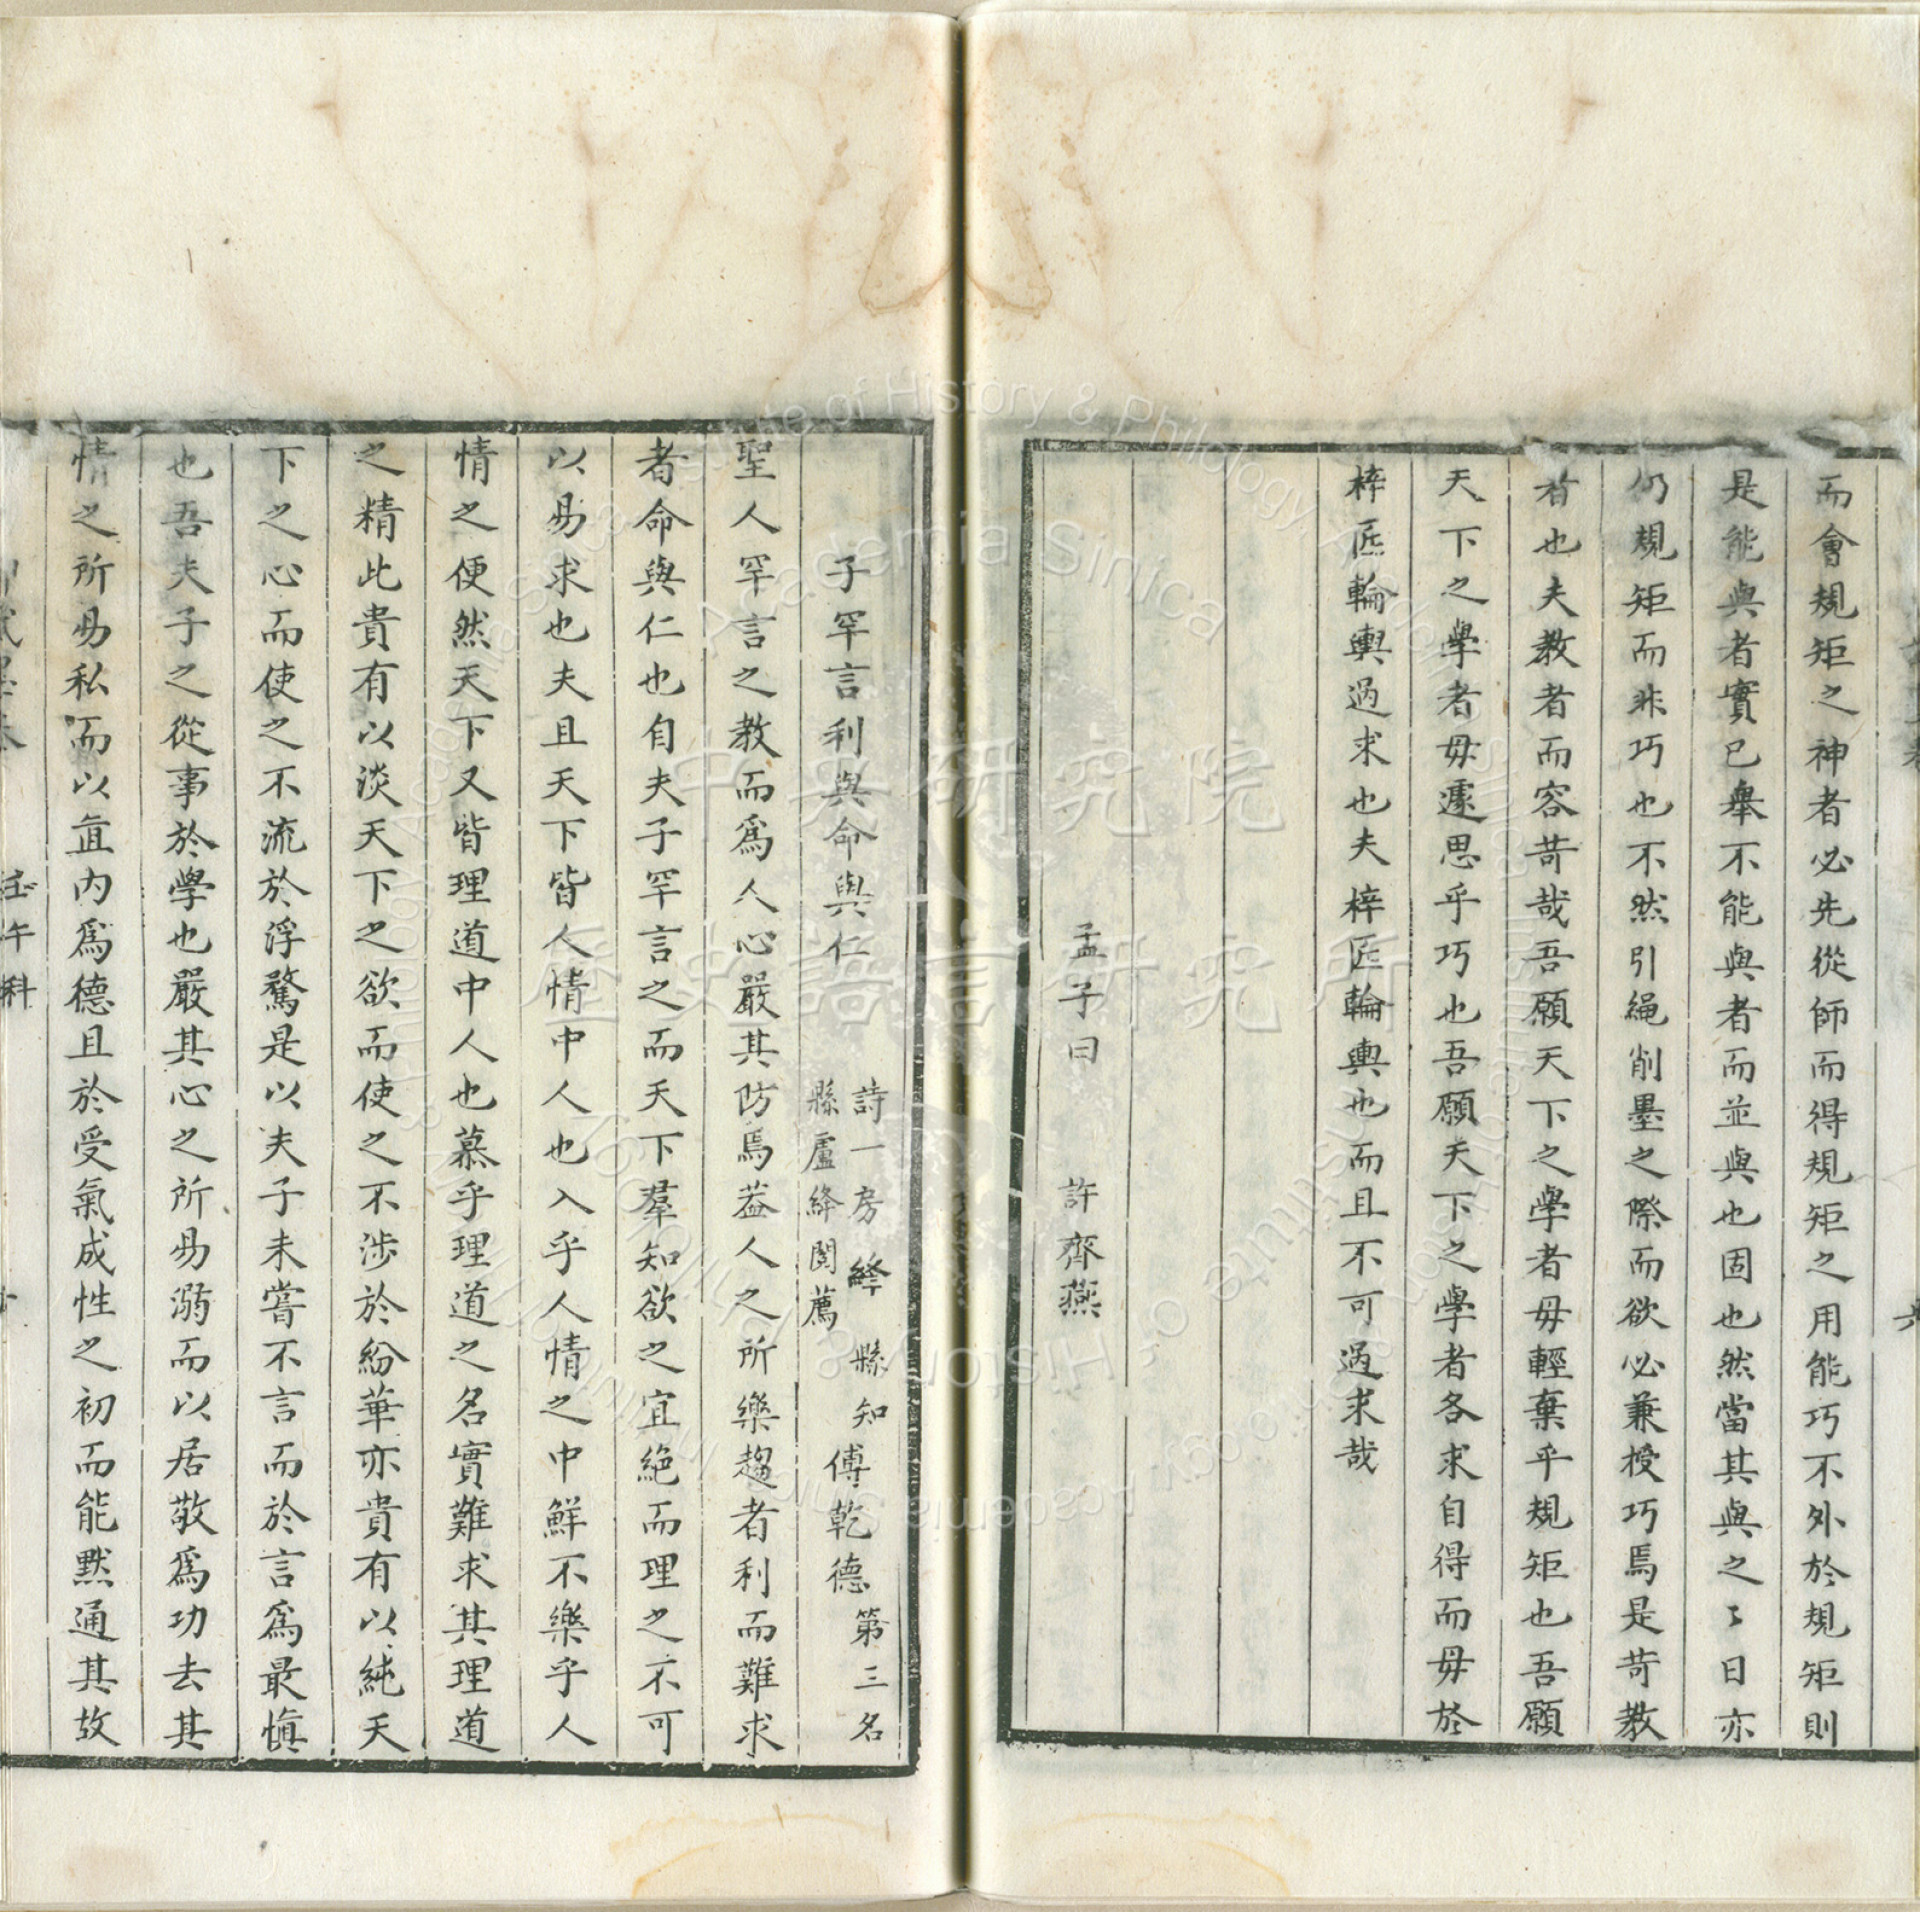 而會規矩之神者必先從師而得規矩之用能巧不外於規矩則
是能與者實已舉不能與者而並與也固也然當其與之之日亦
仍規矩而非巧也不然引繩削墨之際而欲必兼授巧焉是苛教
者也夫教者而容苛哉吾願天下之學者毋輕棄乎規矩也吾願
天下之學者毋遽思乎巧也吾願天下之學者各求自得而毋於
梓匠輪輿過求也夫梓匠輪輿也而且不可過求哉
孟子曰 許齊燕
子罕言利與命與仁 詩一房 絳縣知縣盧絳閱薦 傅乾德 第三名
聖人罕言之教而為人心嚴其防焉葢人之所樂趨者利而難求
者命與仁也自夫子罕言之而天下羣知欲之宜絕而理之不可
以易求也夫且天下皆人情中人也入乎人情之中鮮不樂乎人
情之便然天下又皆理道中人也慕乎理道之名實難求其理道
之精此貴有以淡天下之欲而使之不涉於紛華亦貴有以純天
下之心而使之不流於浮騖是以夫子未嘗不言而於言爲最慎
也吾夫子之從事於學也嚴其心之所易溺而以居敬爲功去其
情之所易私而以直內爲德且於受氣成性之初而能默通其故
壬午科
中央研究院
歷史語言研究所
Institute of History & Philology, Academia Sinica